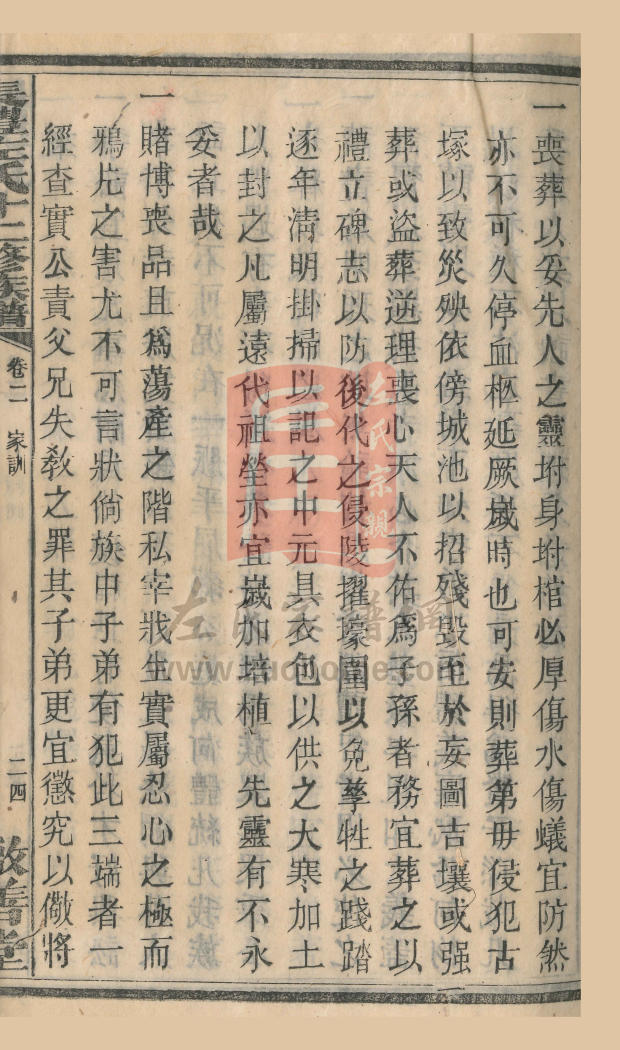 一喪葬以妥先人之靈坿身坿棺必厚傷水傷蟻宜防然
亦不可久停血柩延厥歲時也可安則葬第毋侵犯古
塚以致災殃依傍城池以招殘毀至於妄圖吉壤或强
葬或盜葬逆理喪心天人不佑爲子孫者務宜葬之以
禮立碑志以防後代之侵陵擢壕圍以免孳牲之踐踏
逐年淸明掛掃以記之中元具衣包以供之大寒加土
以封之凡屬遠代祖塋亦宜歲加培植 先靈有不永
妥者哉
一賭博喪品且爲蕩產之階私宰戕生實屬忍心之極而
鴉片之害尤不可言狀倘族中子弟有犯此三端者一
經查實公責父兄失教之罪其子弟更宜懲究以儆將
左氏十二修族譜 卷二 家訓 二四 敦善堂
左氏宗親
www.zuozong.com